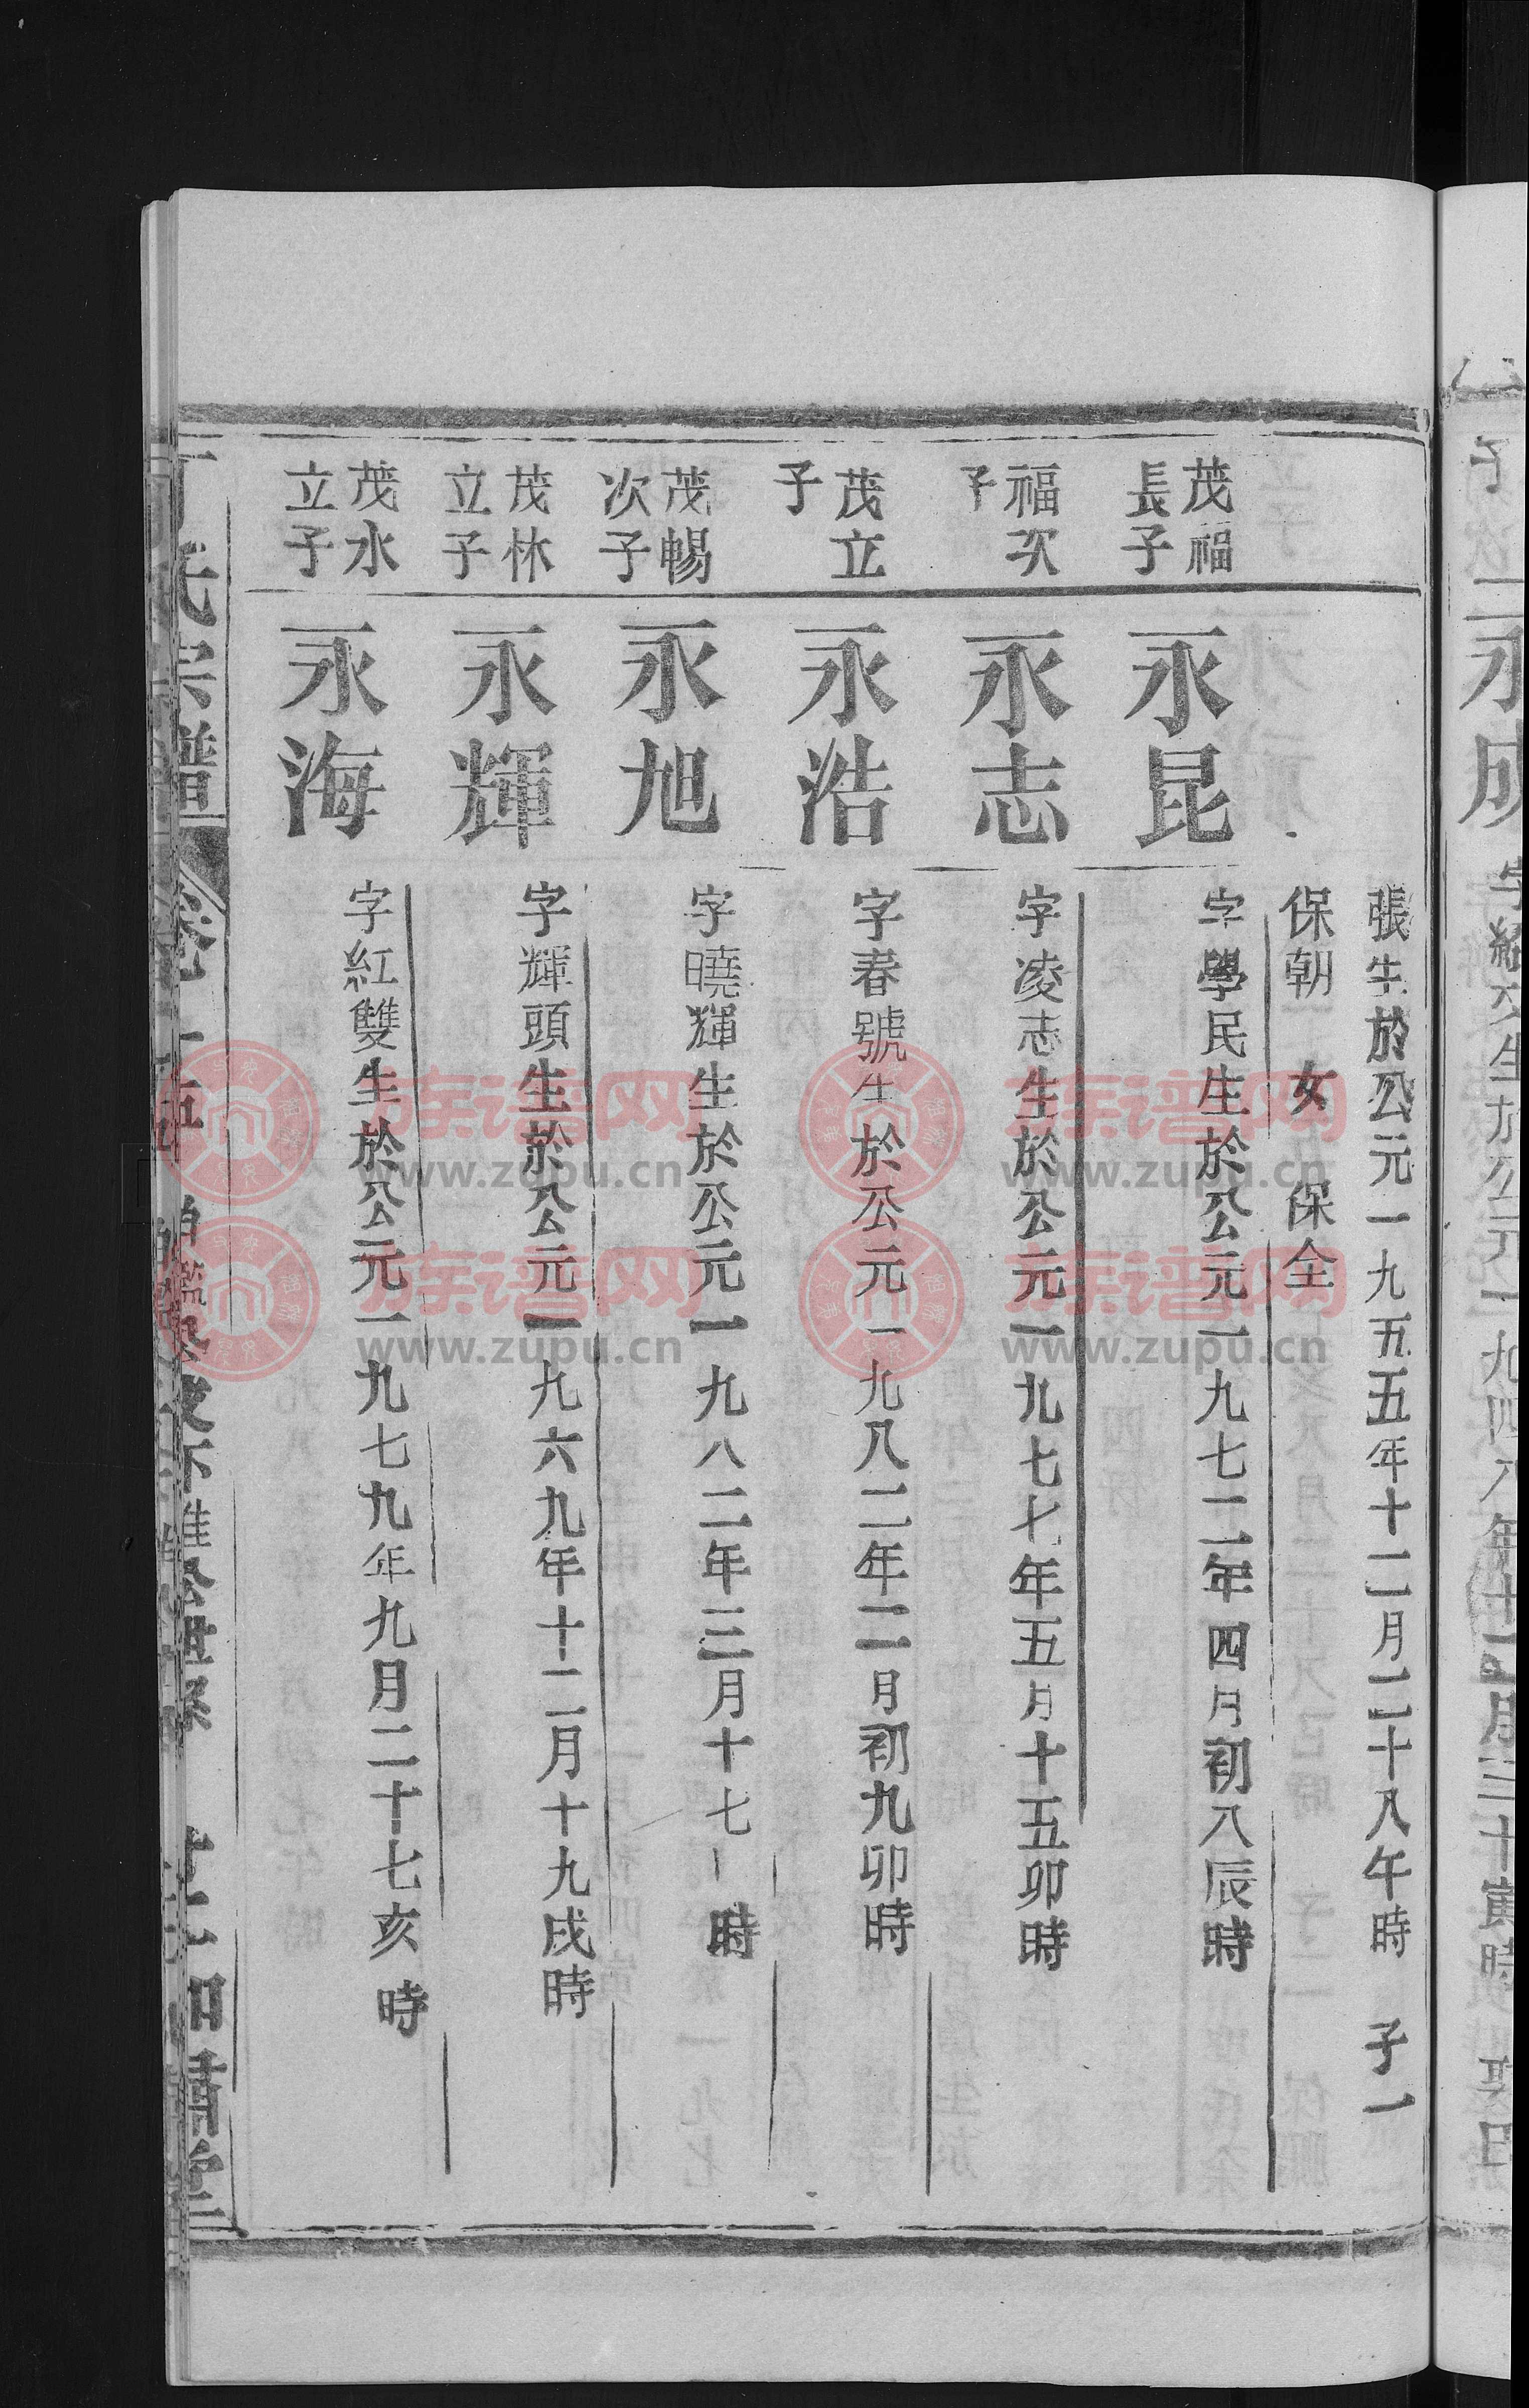 張生於公元一九五五年十二月二十八午時 子一
保朝 女 保全
茂福
長子
永昆
字學民生於公元一九七二年四月初八辰時
福次
子
永志
字凌志生於公元一九七七年五月十五卯時
茂立
子
永浩
字春號生於公元一九八二年二月初九卯時
茂暢
次子
永旭
字曉輝生於公元一九八二年三月十七 時
茂林
立子
永輝
字輝頭生於公元一九六九年十二月十九戌時
茂水
立子
永海
字紅雙生於公元一九七九年九月二十七亥時
氏宗譜
族谱网
www.zupu.cn
族谱网
www.zupu.cn
族谱网
www.zupu.cn
族谱网
www.zupu.cn